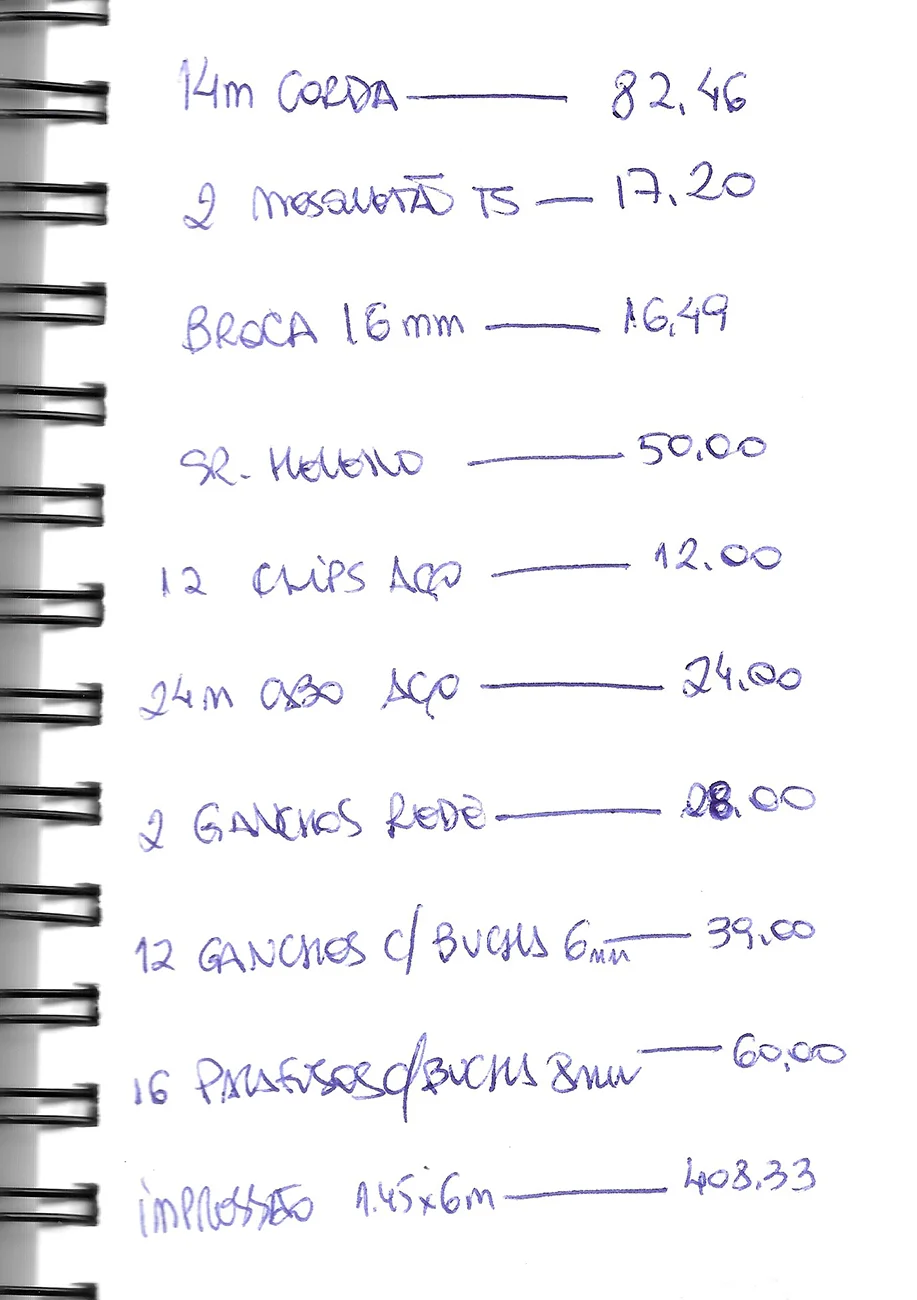 14m CORDA — 82,46
2 MOSQUETÃO TS — 17,20
BROCA 16mm — 16,49
SR. HELENO — 50,00
12 CLIPS AÇO — 12.00
24m CABO AÇO — 24.00
2 GANCHOS REDE — 28.00
12 GANCHOS C/ BUCHA 6mm — 39,00
16 PARAFUSOS C/ BUCHA 8mm — 60,00
IMPRESSÃO 1.45x6m — 408,33